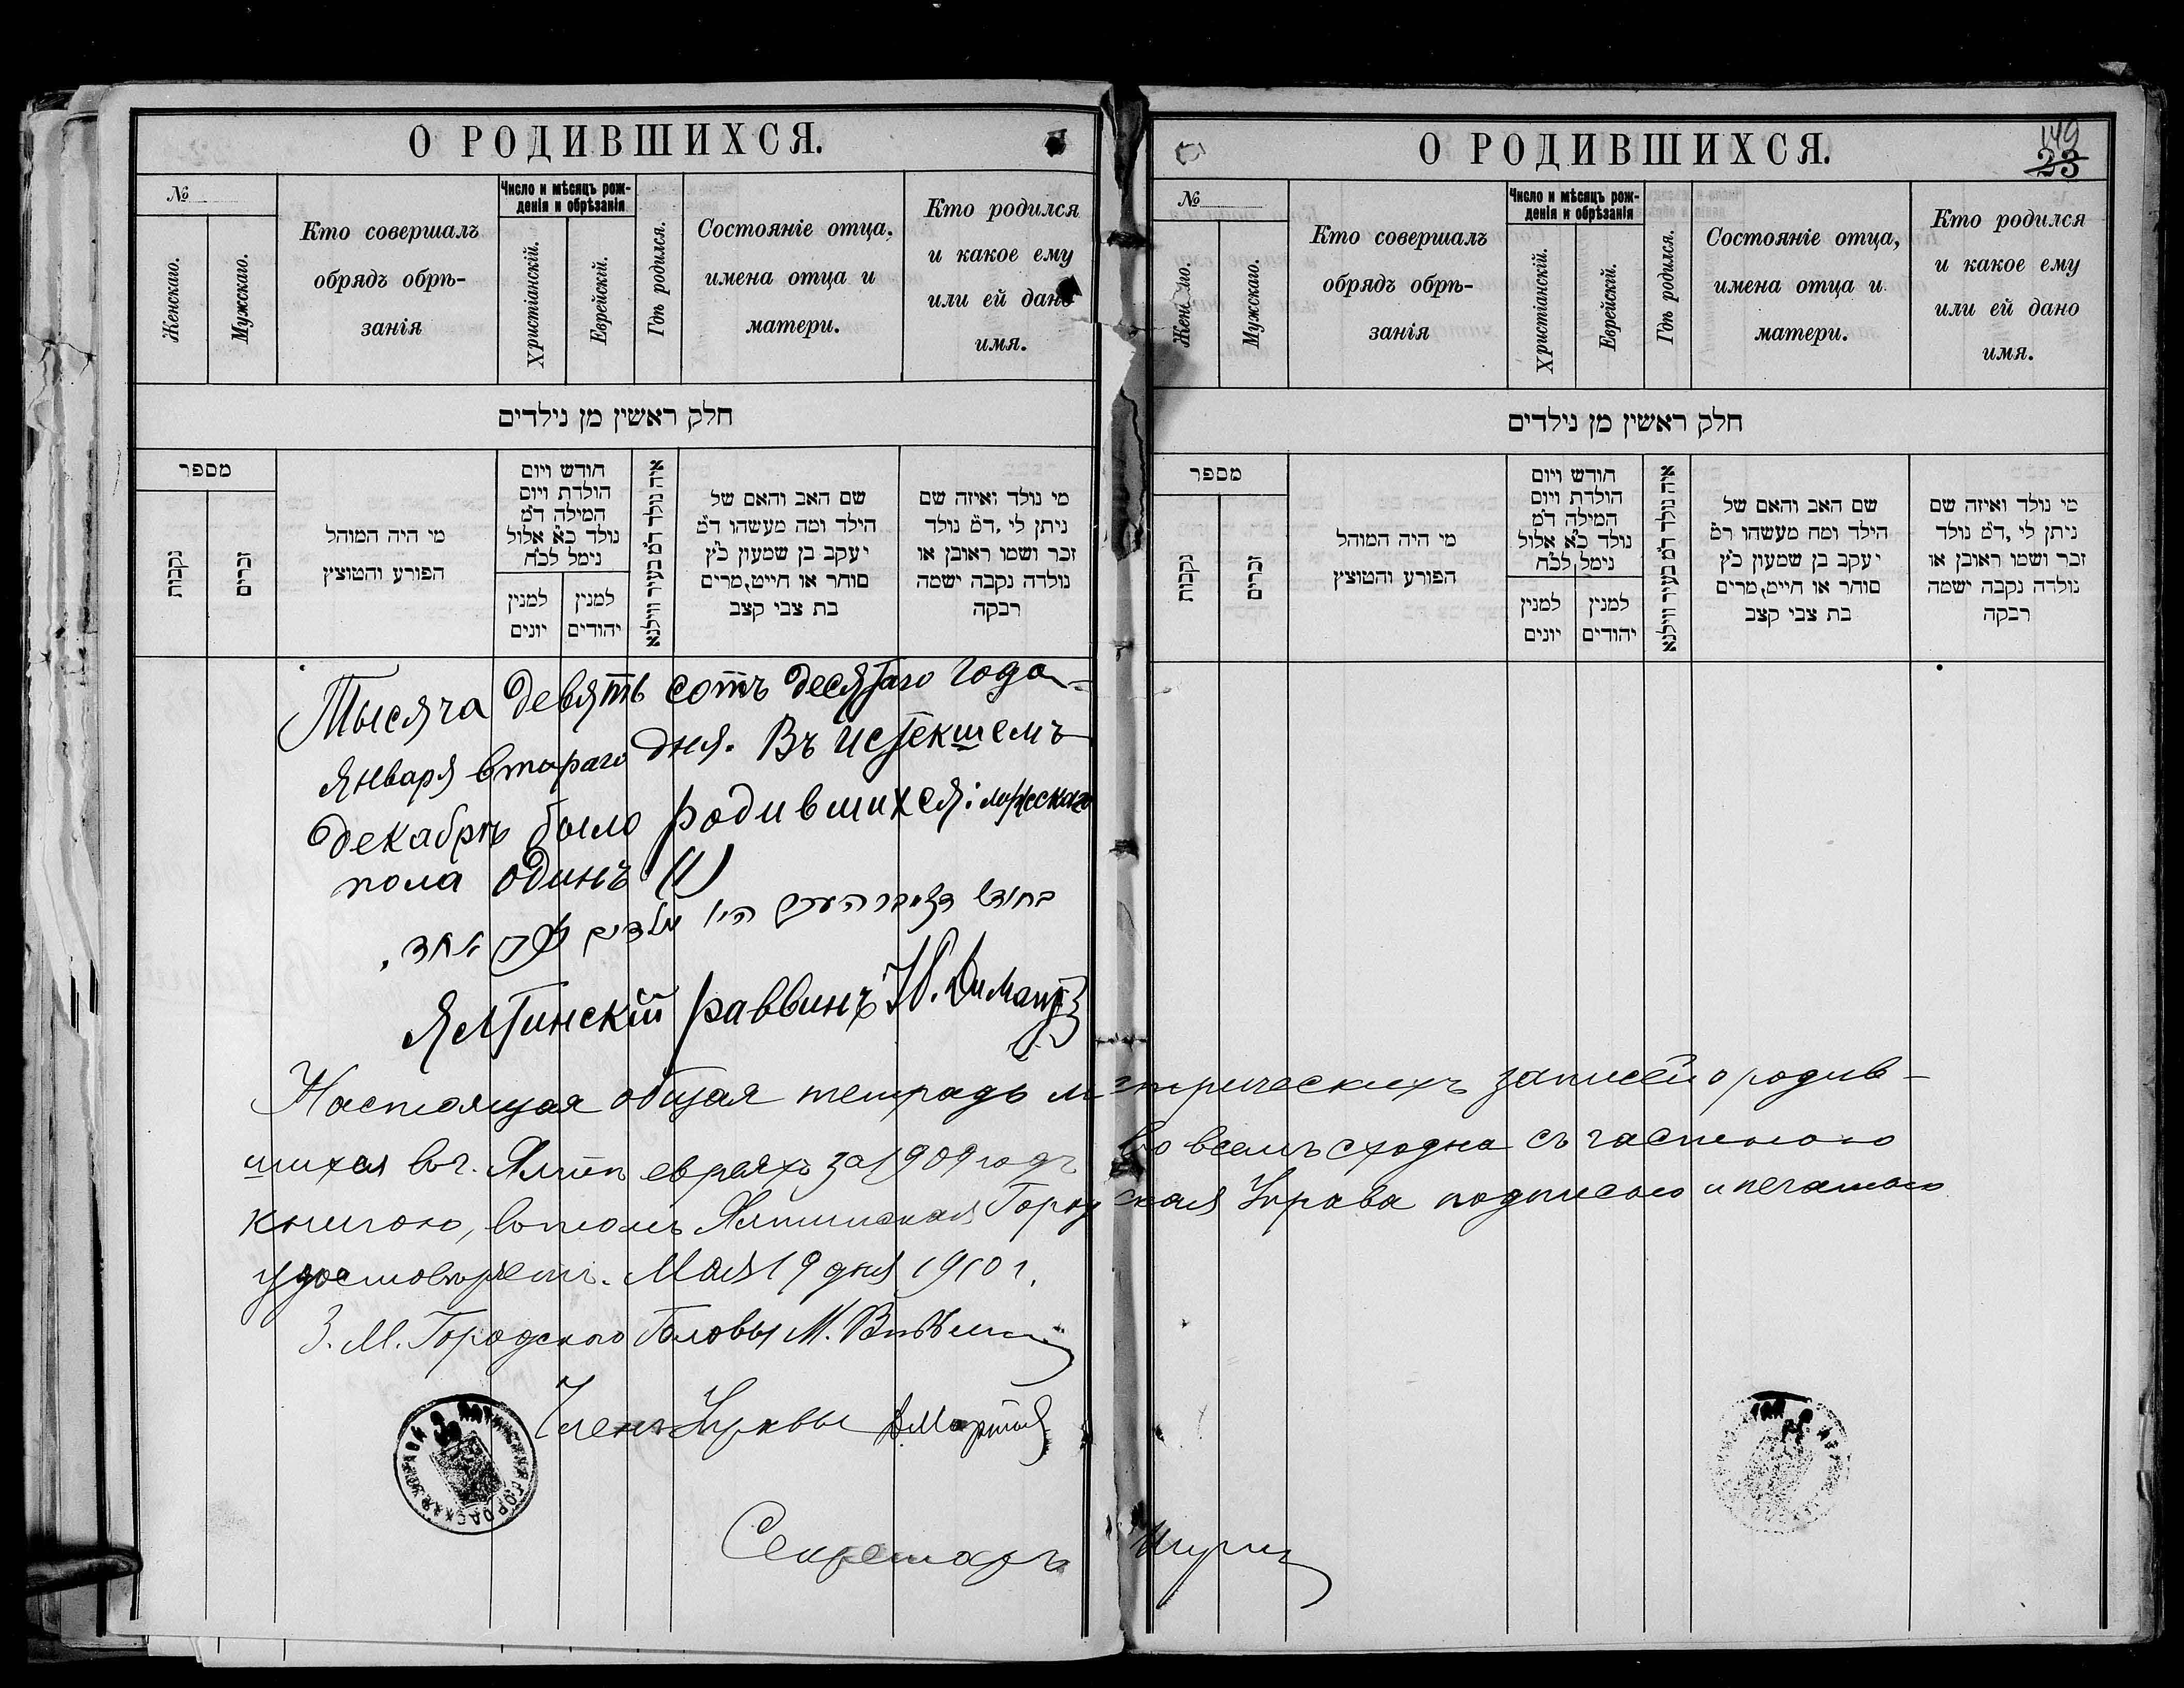 О РОДИВШИХСЯ.
№
Женскаго.
Мужскаго.
Кто совершалъ
обрядъ обрѣ-
занія
Число и мѣсяцъ рож-
денія и обрѣзанія
Христіанскій.
Еврейскій.
Гдѣ родился.
Состояніе отца,
имена отца и
матери.
Кто родился
и какое ему
или ей дано
имя.
חלק ראשין מן נילדים
מספר
נקבות
זכרים
מי היה המוהל
הפורע והטוצץ
חודש ויום
הולדת ויום
המילה ד"מ
נולד כ"א אלול
נימל לכ"ח
למנין
יונים
למנין
יהודים
איה נולד ד"מ בעיר ווילנא
שם האב והאם של
הילד ומה מעשהו ד"מ
יעקב בן שמעון כ"ץ
סוחר או חייט, מרים
בת צבי קצב
מי נולד ואיזה שם
ניתן לי, ד"מ נולד
זכר ושמו ראובן או
נולדה נקבה ישמה
רבקה
Тысяча девять сотъ десятаго года
января втораго дня. Въ истекшемъ
декабрѣ было родившихся: мужескаго
пола одинъ (1)
בחודש דעצעמבר היו נולדים זכר אחד.
Ялтинскій раввинъ
Настоящая общая тетрадь метрическихъ записей о родив-
шихся въ г. Ялтѣ евреяхъ за 1909 годъ во всемъ сходна съ частною
книгою, въ томъ Ялтинская Городская Управа подписью и печатью
удостовѣряетъ. Мая 19 дня 1910 г.
З. М. Городского Головы М.
Членъ Управы
Секретарь
ЯЛТИНСКАЯ ГОРОДСКАЯ УПРАВА
О РОДИВШИХСЯ.
149
23
№
Женскаго.
Мужскаго.
Кто совершалъ
обрядъ обрѣ-
занія
Число и мѣсяцъ рож-
денія и обрѣзанія
Христіанскій.
Еврейскій.
Гдѣ родился.
Состояніе отца,
имена отца и
матери.
Кто родился
и какое ему
или ей дано
имя.
חלק ראשין מן נילדים
מספר
נקבות
זכרים
מי היה המוהל
הפורע והטוצץ
חודש ויום
הולדת ויום
המילה ד"מ
נולד כ"א אלול
נימל לכ"ח
למנין
יונים
למנין
יהודים
איה נולד ד"מ בעיר ווילנא
שם האב והאם של
הילד ומה מעשהו ד"מ
יעקב בן שמעון כ"ץ
סוחר או חייט, מרים
בת צבי קצב
מי נולד ואיזה שם
ניתן לי, ד"מ נולד
זכר ושמו ראובן או
נולדה נקבה ישמה
רבקה